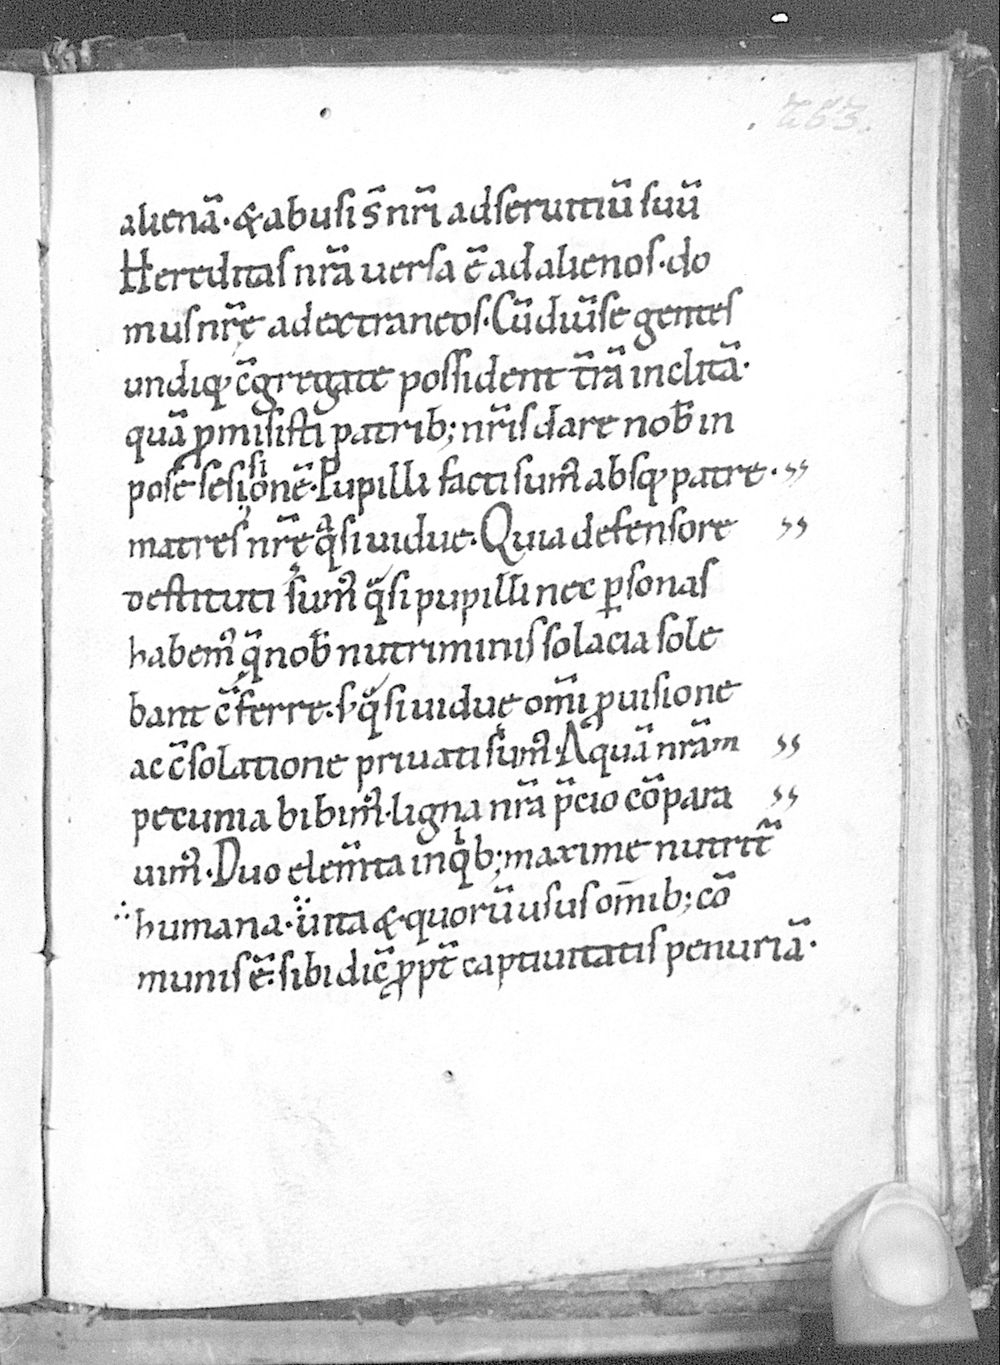 763.
alienā· & abusi s̄ nr̄i ad seruitiū suū
Hereditas nr̄a uersa ē ad alienos· do
mus nr̄ę ad extraneos· Cū diūse gentes
undiq; c̄gregate possident t̄rā inclitā·
quā ꝓmisisti patrib; nr̄is dare nob̄ in
pose sesionē· Pupilli facti sum᷒ absq; patre· ››
si
matres nr̄ę q̄si uidue· Quia defensore ››
destituti sum᷒ q̄si pupilli nec ꝑsonas
habem᷒ q̄ nob̄ nutriminis solacia sole
bant c̄ferre· s; q̄si uiduę om̄i ꝓuisione
ac c̄solatione priuati sum᷒· Aquā nrām ››
pecunia bibim᷒· ligna nr̄a p̄cio cōpara ››
uim᷒· Duo elem̄ta in q̇b; maxime nutrit̄
humana· uita & quorū usus om̄ib; cō
munis ē· sibi dic̄ ꝓpt̄ captiuitatis penuriā·